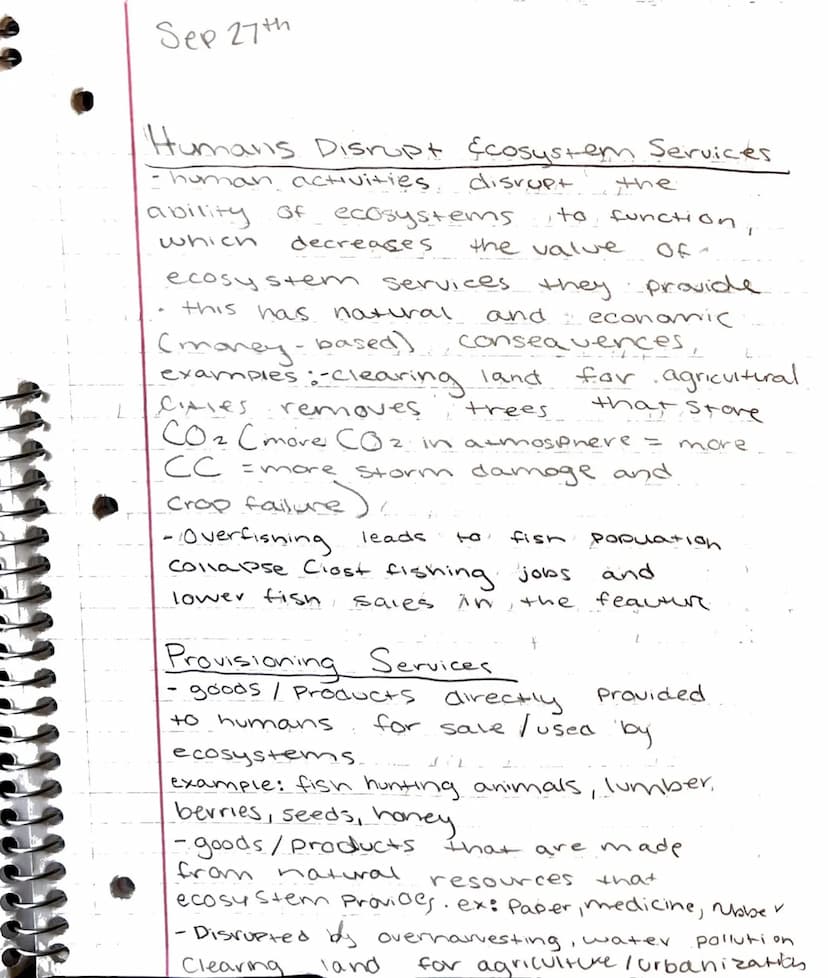 Sep 27th
Humans Disrupt Ecosystem Services
- human activities disrupt the
ability of ecosystems to function,
which decreases the value of
ecosystem services they provide
• this has natural and economic
(money-based) consequences,
examples:-clearing land for agricultural
removes trees that store
CO2 (more CO2 in atmosphere = more
CC = more storm damage and
crop failure)
- Overfishing leads to fish population
collapse (lost fishing jobs and
lower fish sales in the
Provisioning Services
- goods / products directly provided
to humans for sale /used by
ecosystems
example: fish hunting animals, lumber,
berries, seeds, honey
- goods/products that are made
from natural resources that
ecosystem provides. ex: paper, medicine, rubber
- Disrupted by overharvesting, water pollution
clearing land for agriculture /urbanization